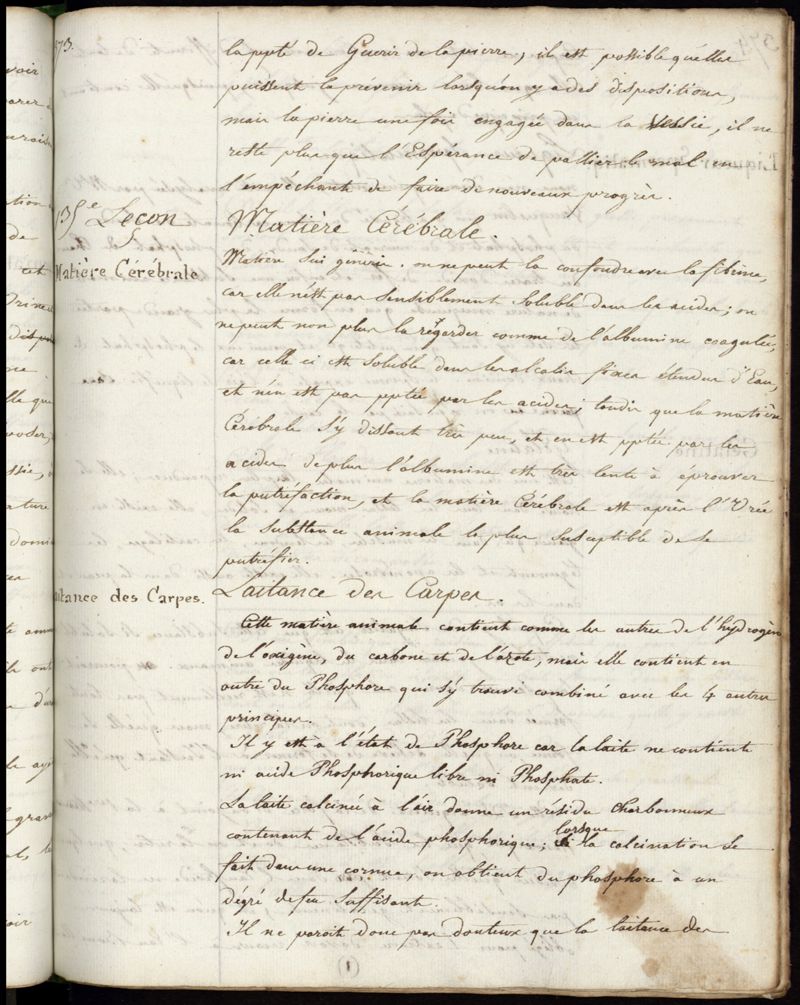 373.
la ppté de Guérir de la pierre, il est possible qu'elles
puissent la prévenir lorsqu'on y a des dispositions,
mais la pierre une fois engagée dans la Vessie, il ne
reste plus que l'Espérance de pallier le mal en
l'empêchant de faire de nouveaux progrès.
135e Leçon
Matière Cérébrale.
Matière Cérébrale
Matière Sui géneris. on ne peut la confondre avec la fibrine,
car elle n'est pas Sensiblement Soluble dans les acides; on
ne peut non plus la régarder comme de l'albumine coagulée,
car celle ci est Soluble dans les alcalis fixes étendus d'Eau,
et n'en est pas pptée par les acides; tandis que la matière
Cérébrale s'y dissout très peu, et en est pptée par les
acides de plus l'albumine est très lente à éprouver
la putréfaction, et la matière Cérébrale est après l'Urée
la Substance animale la plus Susceptible de se
putréfier.
Laitance des Carpes.
Laitance des Carpes.
Cette matière animale contient comme les autres de l'hydrogène
de l'oxigène, du carbone et de l'azote, mais elle contient en
outre du Phosphore qui s'y trouve combiné avec les 4 autres
principes.
Il y est à l'état de Phosphore car la laite ne contient
ni acide Phosphorique libre ni Phosphate.
La laite calcinée à l'air donne un résidu Charbonneux
lorsque
contenant de l'acide phosphorique; la calcination se
fait dans une cornue, on obtient du phosphore à un
dégré de feu Suffisant.
Il ne parait donc pas douteux que la laitance des
1